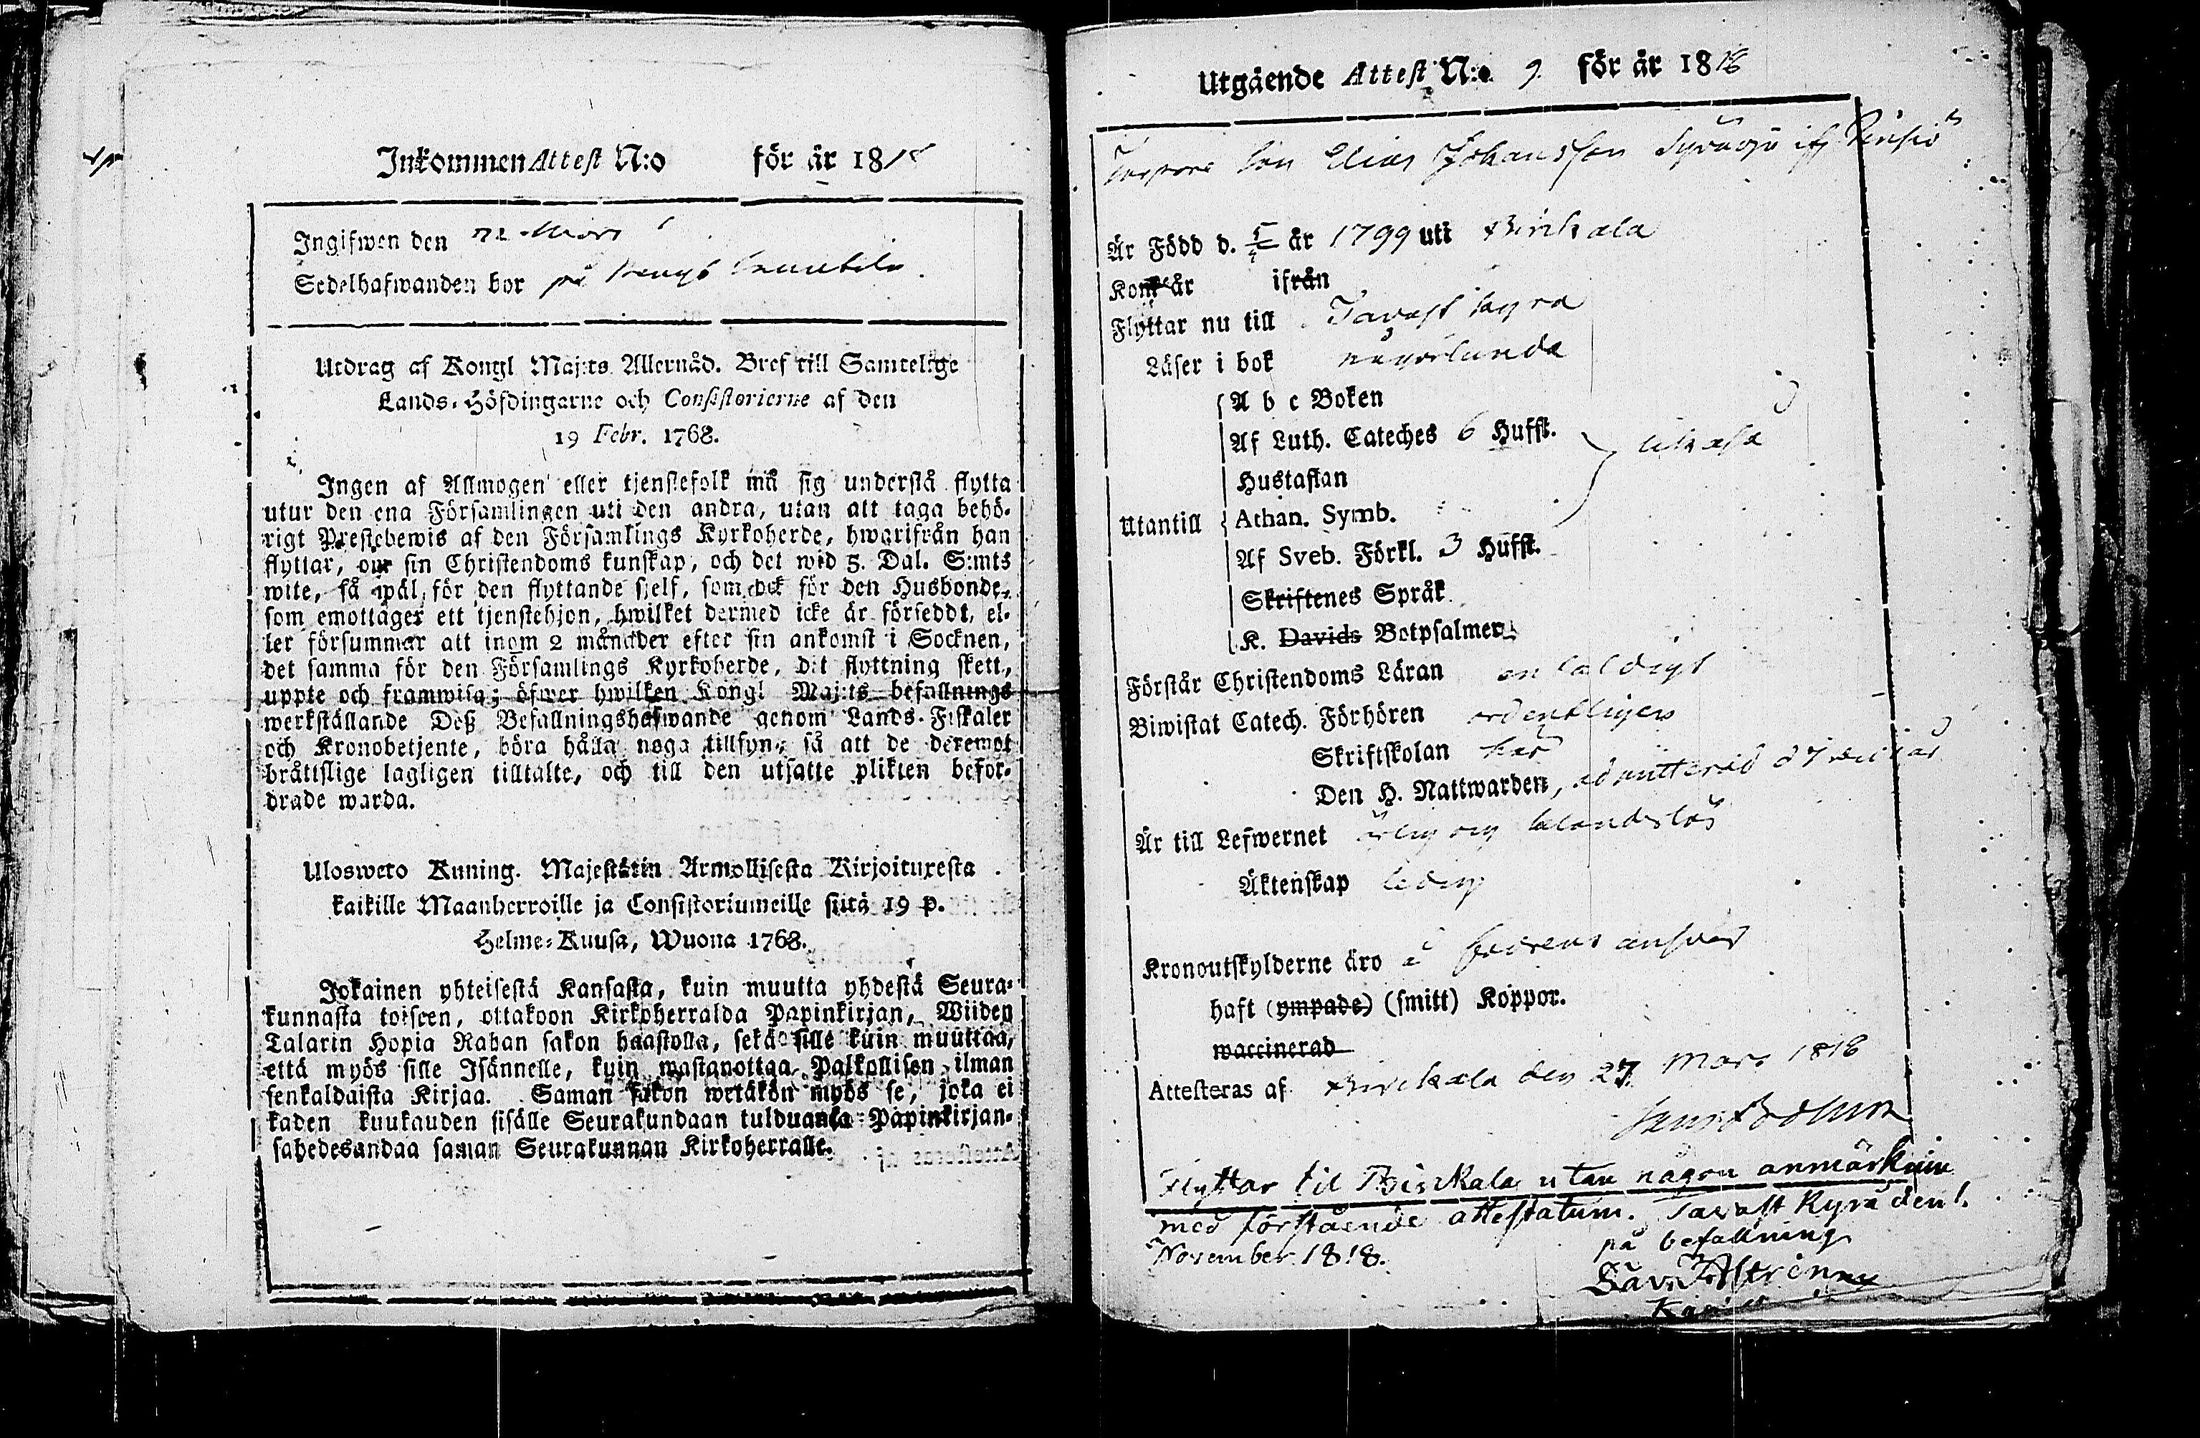 Inkommen Attest N:o för år 1818
Ingifwen den
Sedelhafwanden bor på
Utdrag af Kongl Maj:ts Allernåd. Bref till Samtelige
Lands-Höfdingarne och Consistorierne af den
19 Febr. 1768.
Ingen af Allmogen eller tjenstefolk må sig understå flytta
utur den ena Församlingen uti den andra, utan att taga behö-
rigt Prestebewis af den Församlings Kyrkoherde, hwarifrån han
flyttar, om sin Christendoms kunskap, och det wid 5. Dal. S:mts
wite, så wäl för den flyttande sjelf, som ock för den Husbonde,
som emottager ett tjenstehjon, hwilket dermed icke är försedt, el-
ler försummar att inom 2 månader efter sin ankomst i Socknen,
det samma för den Församlings Kyrkoherde, dit flyttning skett,
uppte och framwisa; öfwer hwilken Kongl Maj:ts befallnings
werkställande Deß Befallningshafwande genom Lands-Fiskaler
och Kronobetjente, böra hålla noga tillsyn, så att de deremot
bråttslige lagligen tilltalte, och till den utsatte plikten befor-
drade warda.
Ulosweto Kuning. Majestätin Armollisesta Kirjoituxesta
kaikille Maanherroille ja Consistoriumeille siitä 19 p.
Helme-Kuusa, Wuona 1768.
Jokainen yhteisestä Kansasta, kuin muutta yhdestä Seura-
kunnasta toiseen, ottakoon Kirkoherralda Papinkirjan, Wiiden
Talarin Hopia Rahan sakon haastolla, sekä sille kuin muuttaa,
että myös sille Isännelle, kuin wastanottaa Palkollisen ilman
senkaldaista Kirjaa. Saman sakon wetäkön myös se, joka ei
kaden kuukauden sisälle Seurakundaan tulduansa Papinkirjan-
sahedesandaa saman Seurakunnan Kirkoherralle.
Utgående Attest N:o 9. för år 1818
son Elias Johansson
Är Född d. år 1799 uti Birkala
Kom år ifrån
Flyttar nu till Tavastkyro
Läser i bok någorlunda
A b c Boken
Af Luth. Cateches 6 Hufst.
Hustaflan
Utantill Athan. Symb.
Af Sveb. Förkl. 3 Hufst.
Skriftenes Språk
K. Davids Botpsalmer
Förstår Christendoms Läran enfaldigt
Biwistat Catech. Förhören ordentligen
Skriftskolan
Den H. Nattwarden, admitterad
Är till Lefwernet ärlig och
Äktenskap ledig
Kronoutskylderne äro å faderens answar
haft (ympade) (smitt) Koppor.
waccinerad
Attesteras af Birckala den 27. Mars 1818
Flyttar til Birckala utan någon anmärkning
med förstående attestatum. Tavastkyro den 1.
November 1818.
på befallning